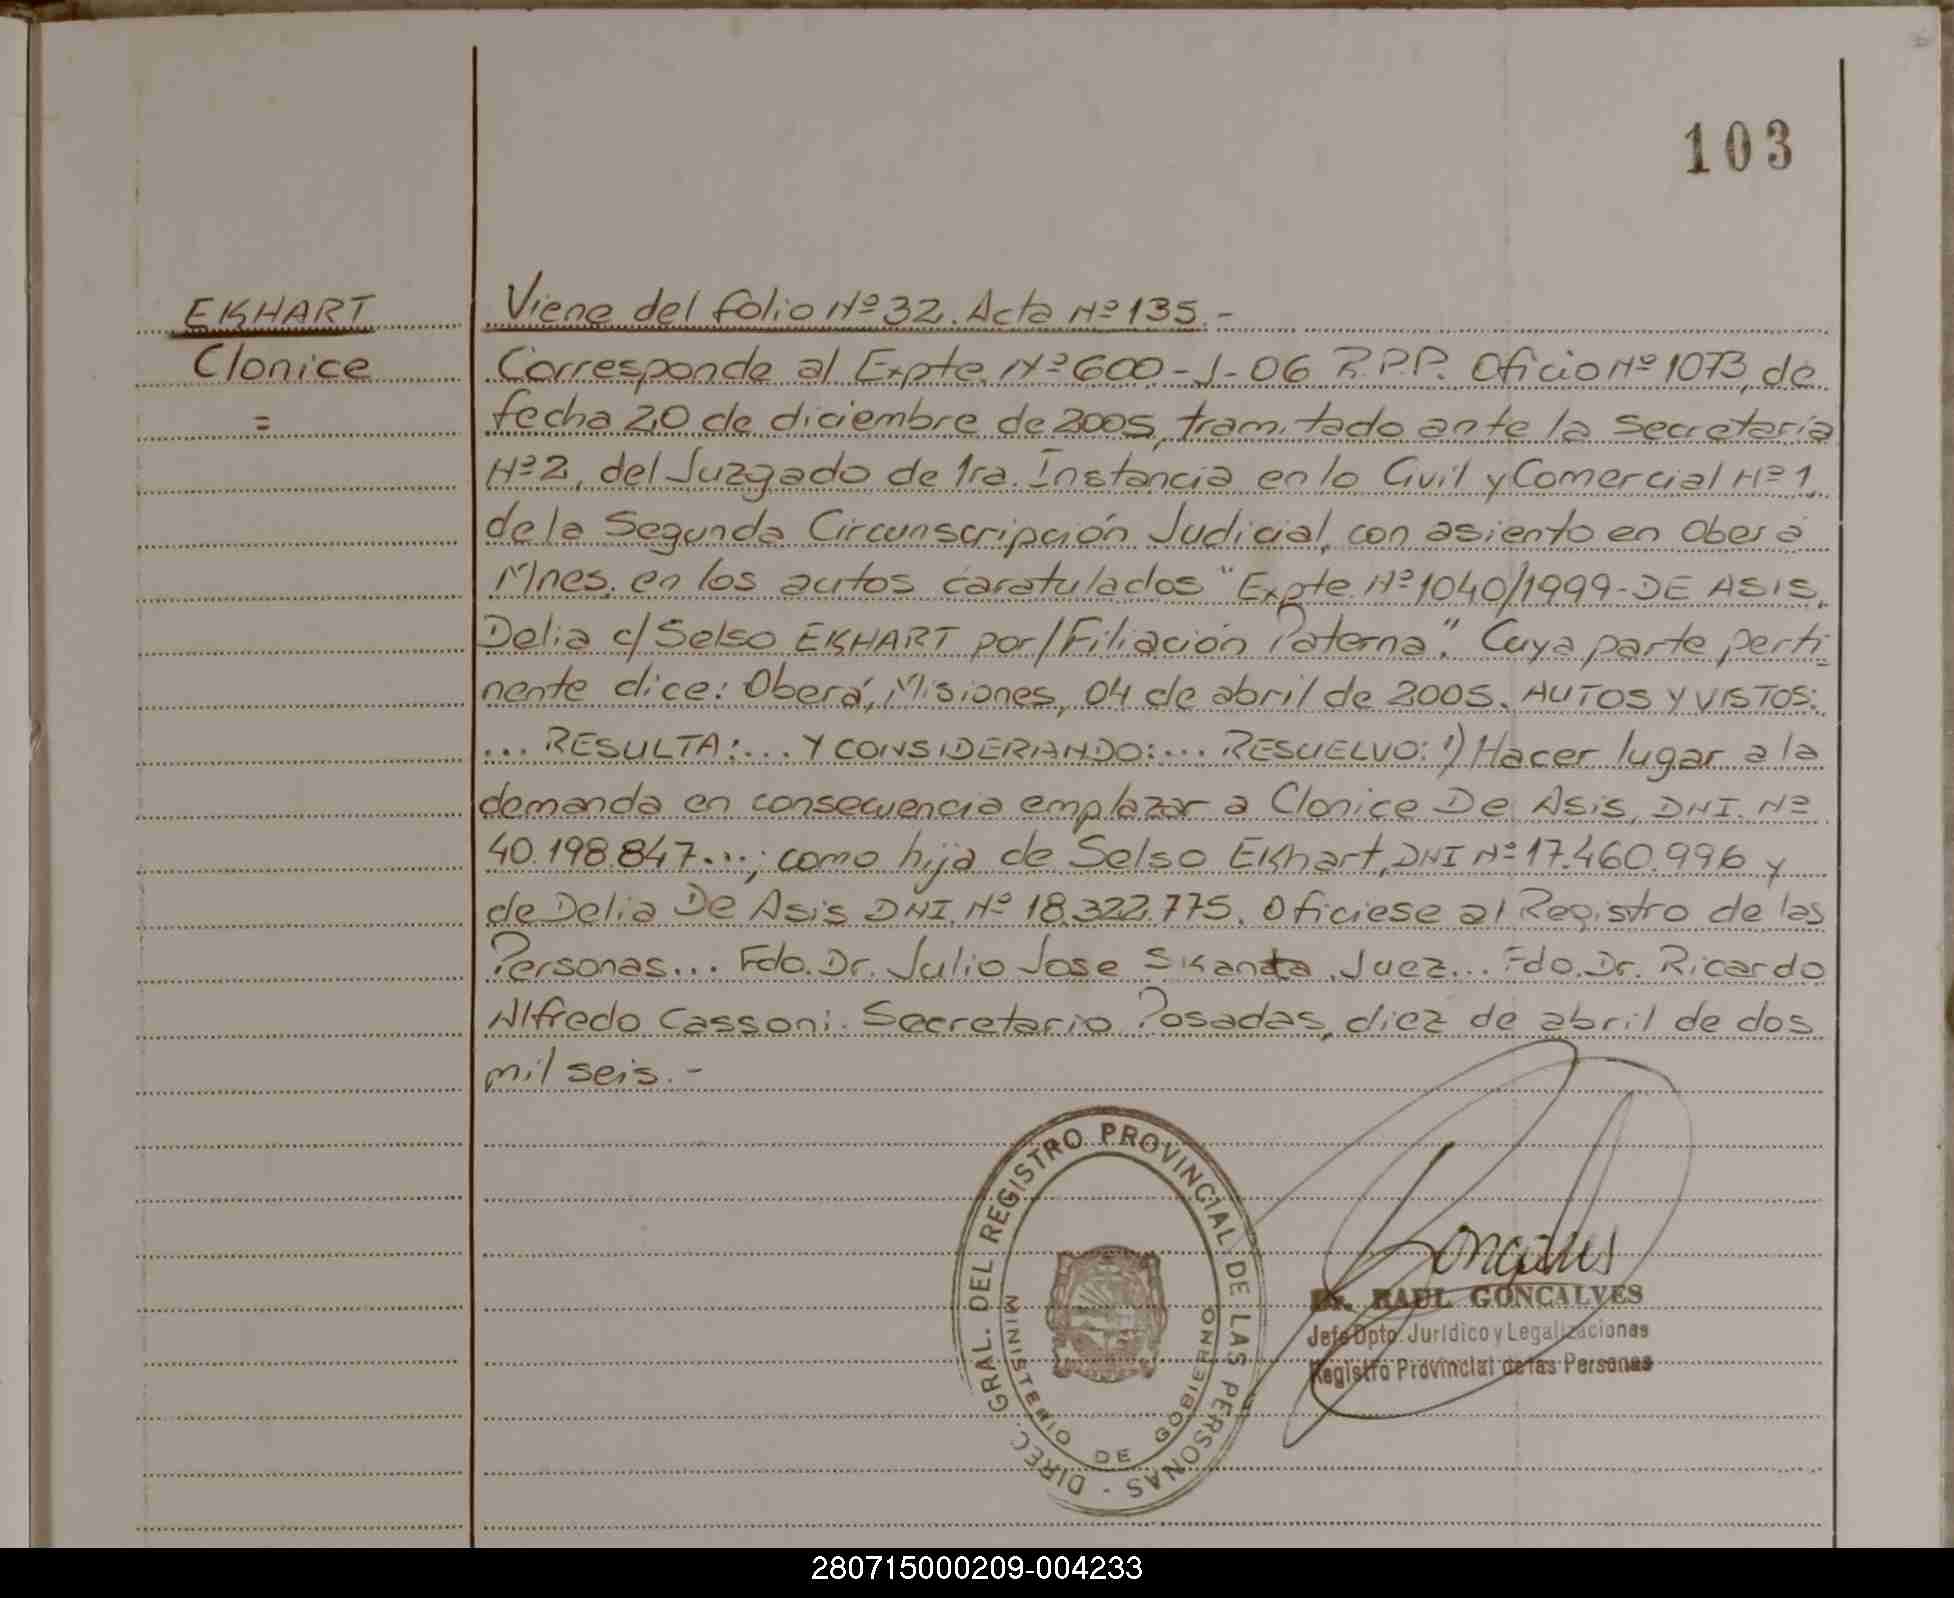 103
EKHART
Clonice
=
Viene del folio Nº 32. Acta Nº 135.-
Corresponde al Expte. Nº 600-J-06 R.P.P. Oficio Nº 1073, de
fecha 20 de diciembre de 2005, tramitado ante la Secretaría
Nº 2, del Juzgado de 1ra. Instancia en lo Civil y Comercial Nº 1,
de la Segunda Circunscripción Judicial, con asiento en Oberá
Mnes. en los autos caratulados "Expte. Nº 1040/1999-DE ASIS,
Delia c/ Selso EKHART por/Filiación Paterna". Cuya parte perti-
nente dice: Oberá, Misiones, 04 de abril de 2005. AUTOS Y VISTOS:
... RESULTA:... Y CONSIDERANDO:... RESUELVO: 1) Hacer lugar a la
demanda en consecuencia emplazar a Clonice De Asis, DNI. Nº
40.198.847...; como hija de Selso Ekhart, DNI Nº 17.460.996 y
de Delia De Asis DNI. Nº 18.322.775. Ofíciese al Registro de las
Personas... Fdo. Dr. Julio Jose Skanata. Juez... Fdo. Dr. Ricardo
Alfredo Cassoni. Secretario. Posadas, diez de abril de dos
mil seis.-
DIREC. GRAL. DEL REGISTRO PROVINCIAL DE LAS PERSONAS -
MINISTERIO DE GOBIERNO
Goncalves
Dr. RAUL GONCALVES
Jefe Dpto. Jurídico y Legalizaciones
Registro Provincial de las Personas
280715000209-004233